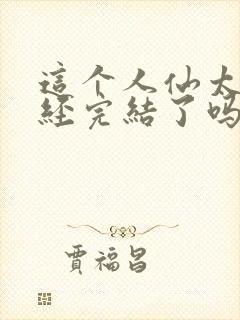 這个人仙太
經完結了吗
賈福昌